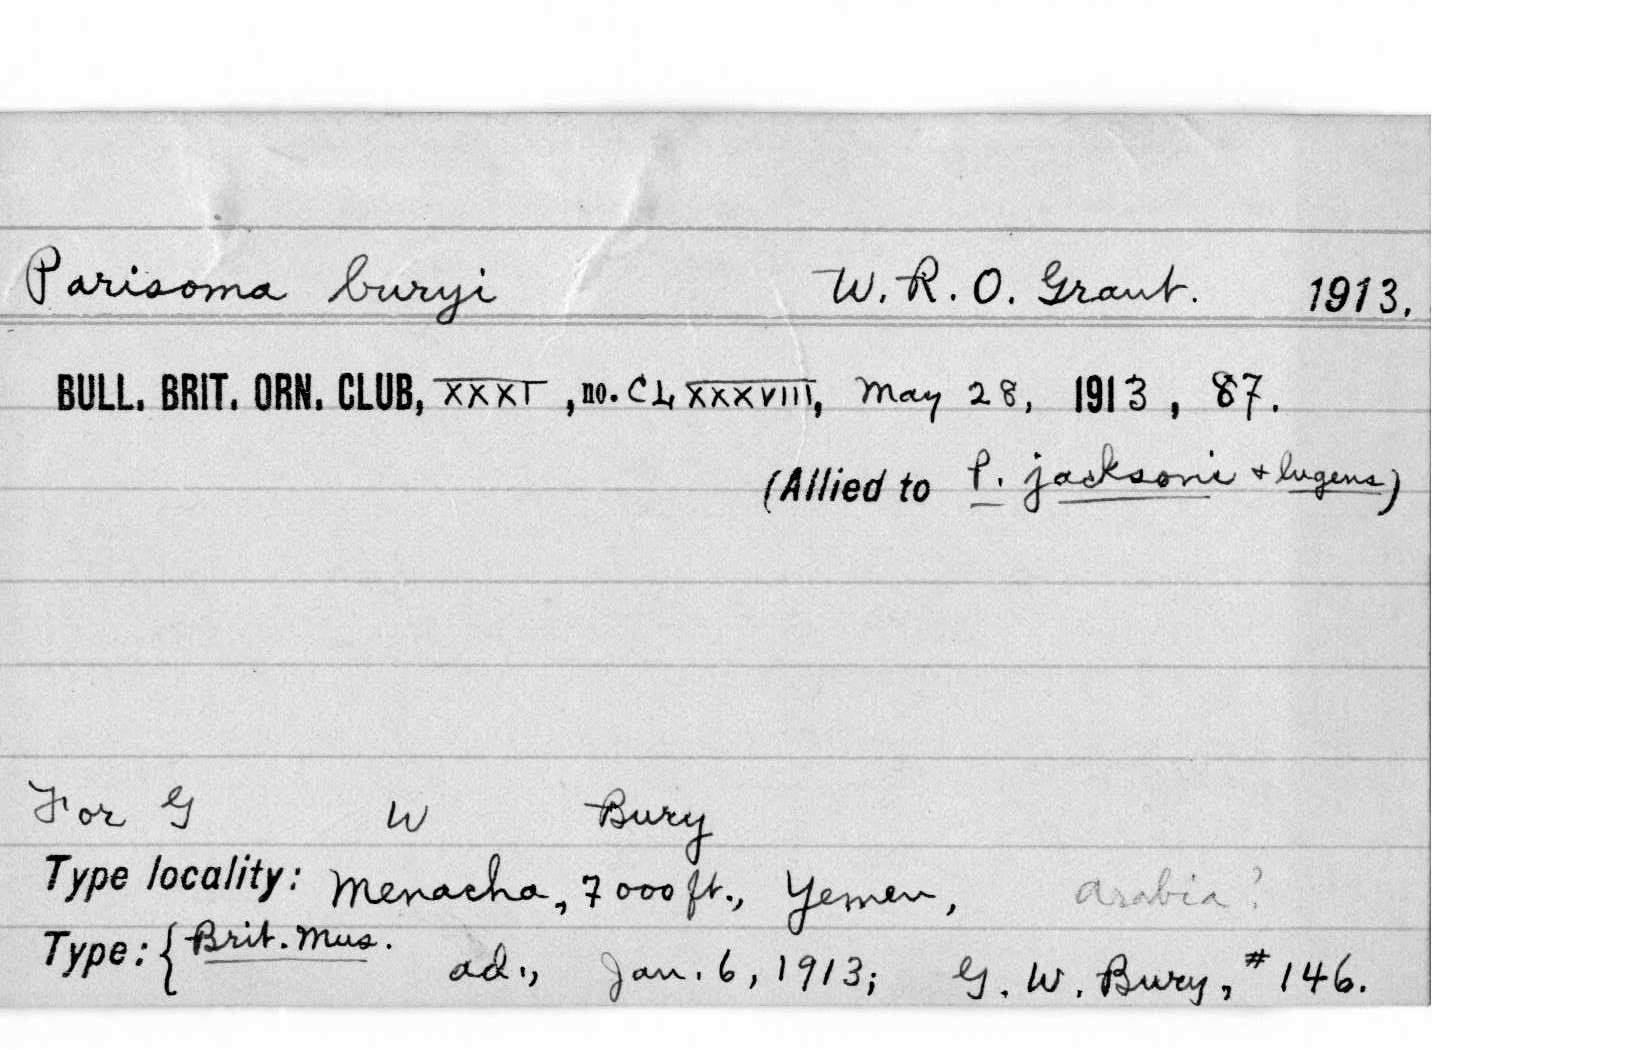 Parisoma buryi W. R. O. Grant. 1913.
BULL. BRIT. ORN. CLUB, XXXI, no. CLXXXVIII, May 28, 1913, 87.
(Allied to P. jacksoni + lugens)
For G W Bury
Type locality: Menacha, 7000 ft., Yemen, Arabia?
Type: { Brit. Mus. ad., Jan. 6, 1913; G. W. Bury, #146.